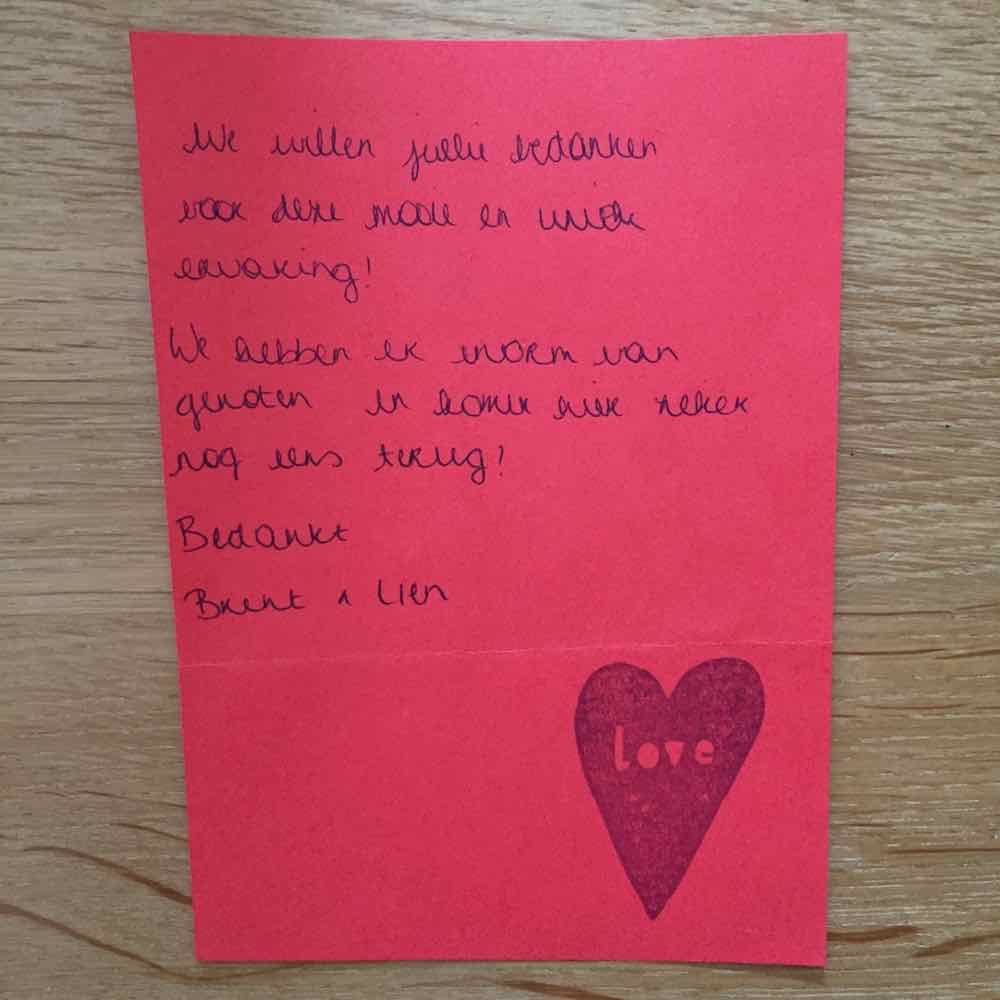 We willen jullie bedanken
voor deze mooie en unieke
ervaring!
We hebben er enorm van
genoten en komen hier zeker
nog eens terug!
Bedankt
Brent & Lien
love